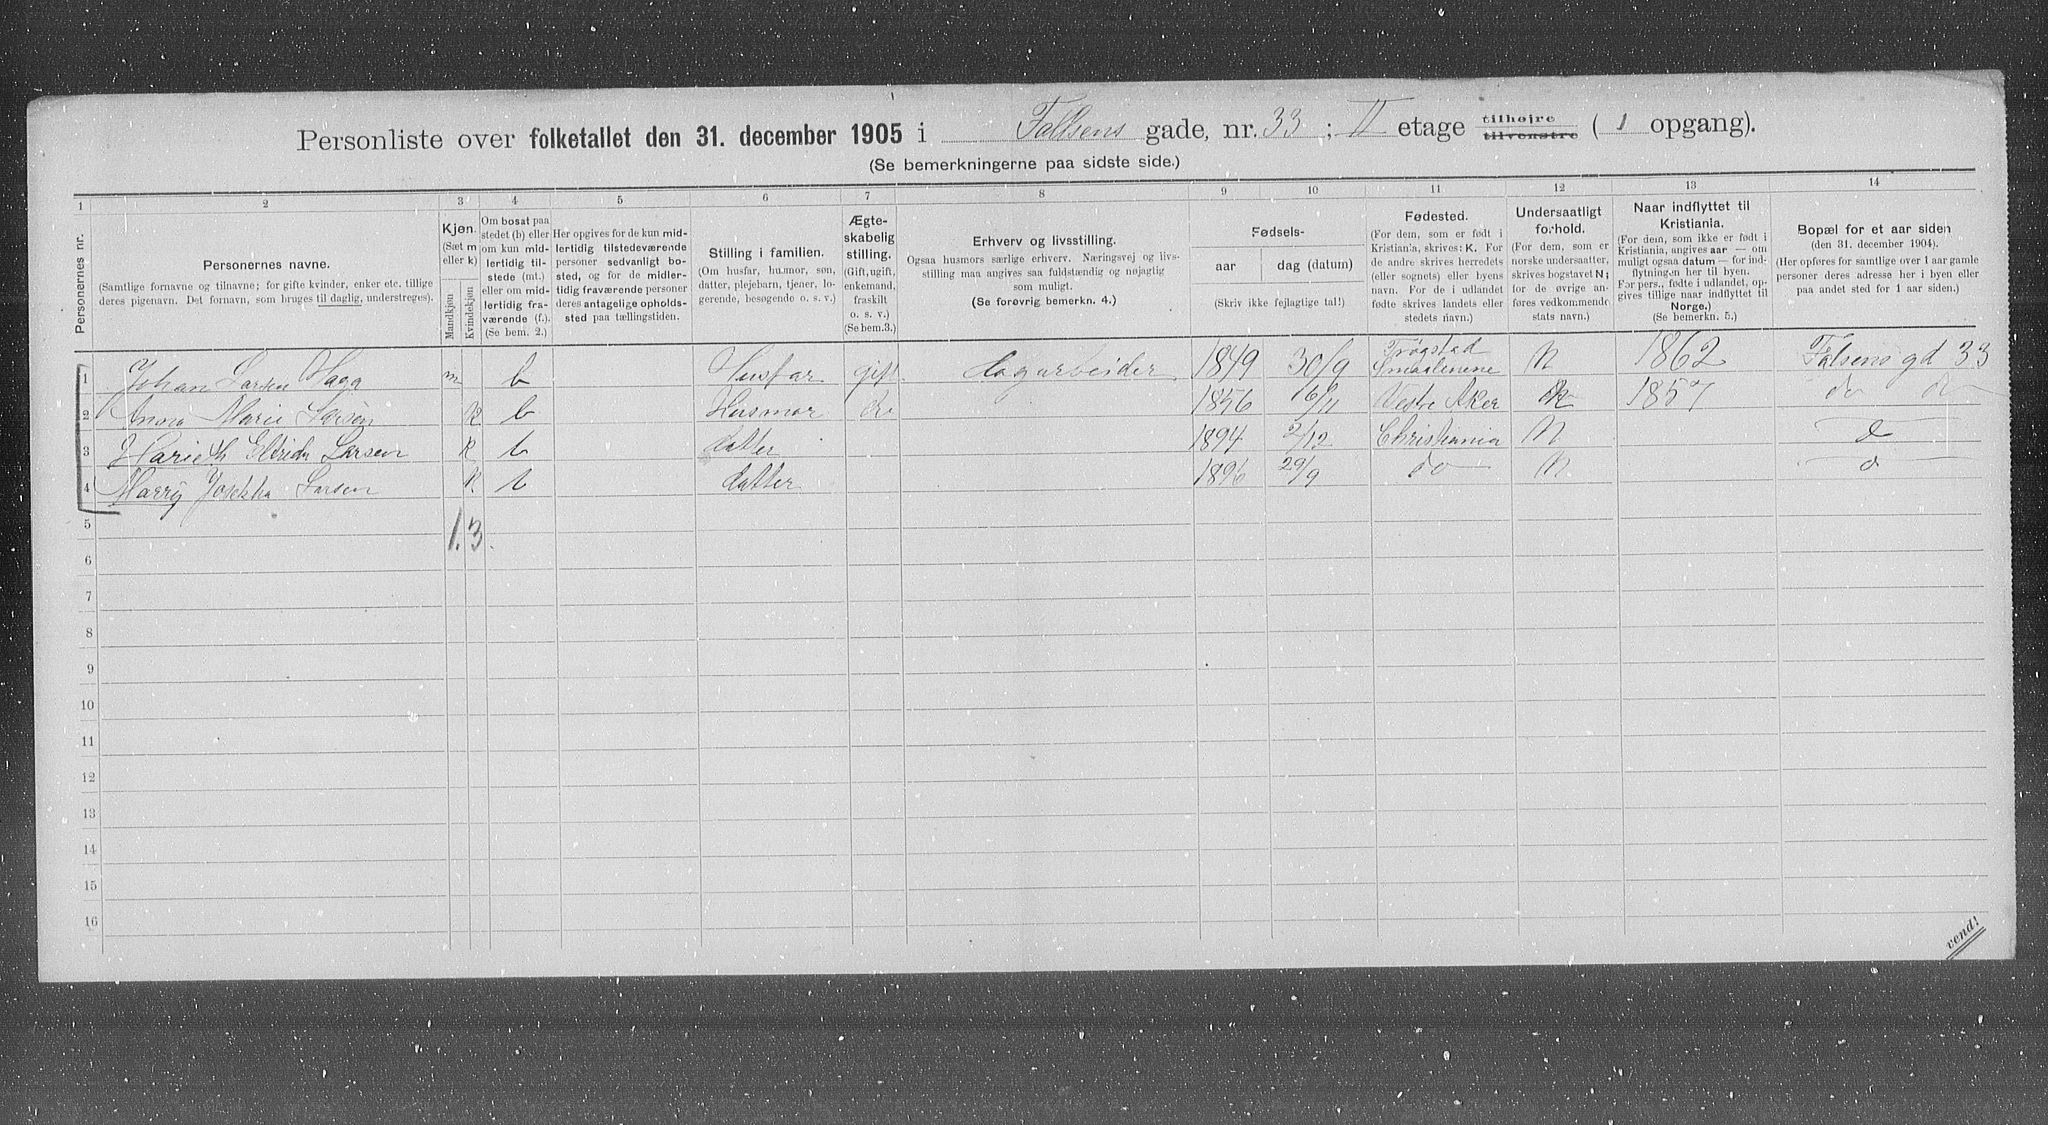 Personliste over folketallet den 31. december 1905 i Falsens gade, nr. 33 ; II etage tilhøjre tilvenstre ( 1 opgang).
(Se bemerkningerne paa sidste side.)
1 2 3 4 5 6 7 8 9 10 11 12 13 14
Personernes nr.
Personernes navne.
(Samtlige fornavne og tilnavne; for gifte kvinder, enker etc. tillige
deres pigenavn. Det fornavn, som bruges til daglig, understreges).
Kjøn.
(Sæt m
eller k)
Mandkjøn
Kvindekjøn
Om bosat paa
stedet (b) eller
om kun mid-
lertidig til-
stede (mt.)
eller om mid-
lertidig fra-
værende (f.).
(Se bem. 2.)
Her opgives for de kun mid-
lertidig tilstedeværende
personer sedvanligt bo-
sted, og for de midler-
tidig fraværende personer
deres antagelige opholds-
sted paa tællingstiden.
Stilling i familien.
(Om husfar, husmor, søn,
datter, plejebarn, tjener, lo-
gerende, besøgende o. s. v.)
Ægte-
skabelig
stilling.
(Gift, ugift,
enkemand,
fraskilt
o. s. v.)
(Se bem.3.)
Erhverv og livsstilling.
Ogsaa husmors særlige erhverv. Næringsvej og livs-
stilling maa angives saa fuldstændig og nøjagtig
som muligt.
(Se forøvrig bemerkn. 4.)
Fødsels-
aar dag (datum)
(Skriv ikke fejlagtige tal!)
Fødested.
(For dem, som er født i
Kristiania, skrives: K. For
de andre skrives herredets
(eller sognets) eller byens
navn. For de i udlandet
fødte skrives landets eller
stedets navn.)
Undersaatligt
forhold.
(For dem, som er
norske undersaatter,
skrives bogstavet N;
for de øvrige an-
føres vedkommende
stats navn.)
Naar indflyttet til
Kristiania.
(For dem, som ikke er født i
Kristiania, angives aar — om
muligt ogsaa datum — for ind-
flytningen her til byen.
For pers., fødte i udlandet, op-
gives tillige naar indflyttet til
Norge.)
(Se bemerkn. 5.)
Bopæl for et aar siden
(den 31. december 1904).
(Her opføres for samtlige over 1 aar gamle
personer deres adresse her i byen eller
paa andet sted for 1 aar siden.)
1 Johan Larsen Haga m b Husfar gift. dagarbeider 1849 30/9 Trøgstad Smaalenene N 1862 Falsens gd 33
2 Anna Marie Larsen K b Husmor do 1856 16/11 Vestre Aker N 1857 do do
3 Harieth Elvida Larsen K b datter 1894 2/12 Christiania N do
4 Marry Josepha Larsen K b datter 1896 29/9 do N do
5 1. 3.
6
7
8
9
10
11
12
13
14
15
16
vend!